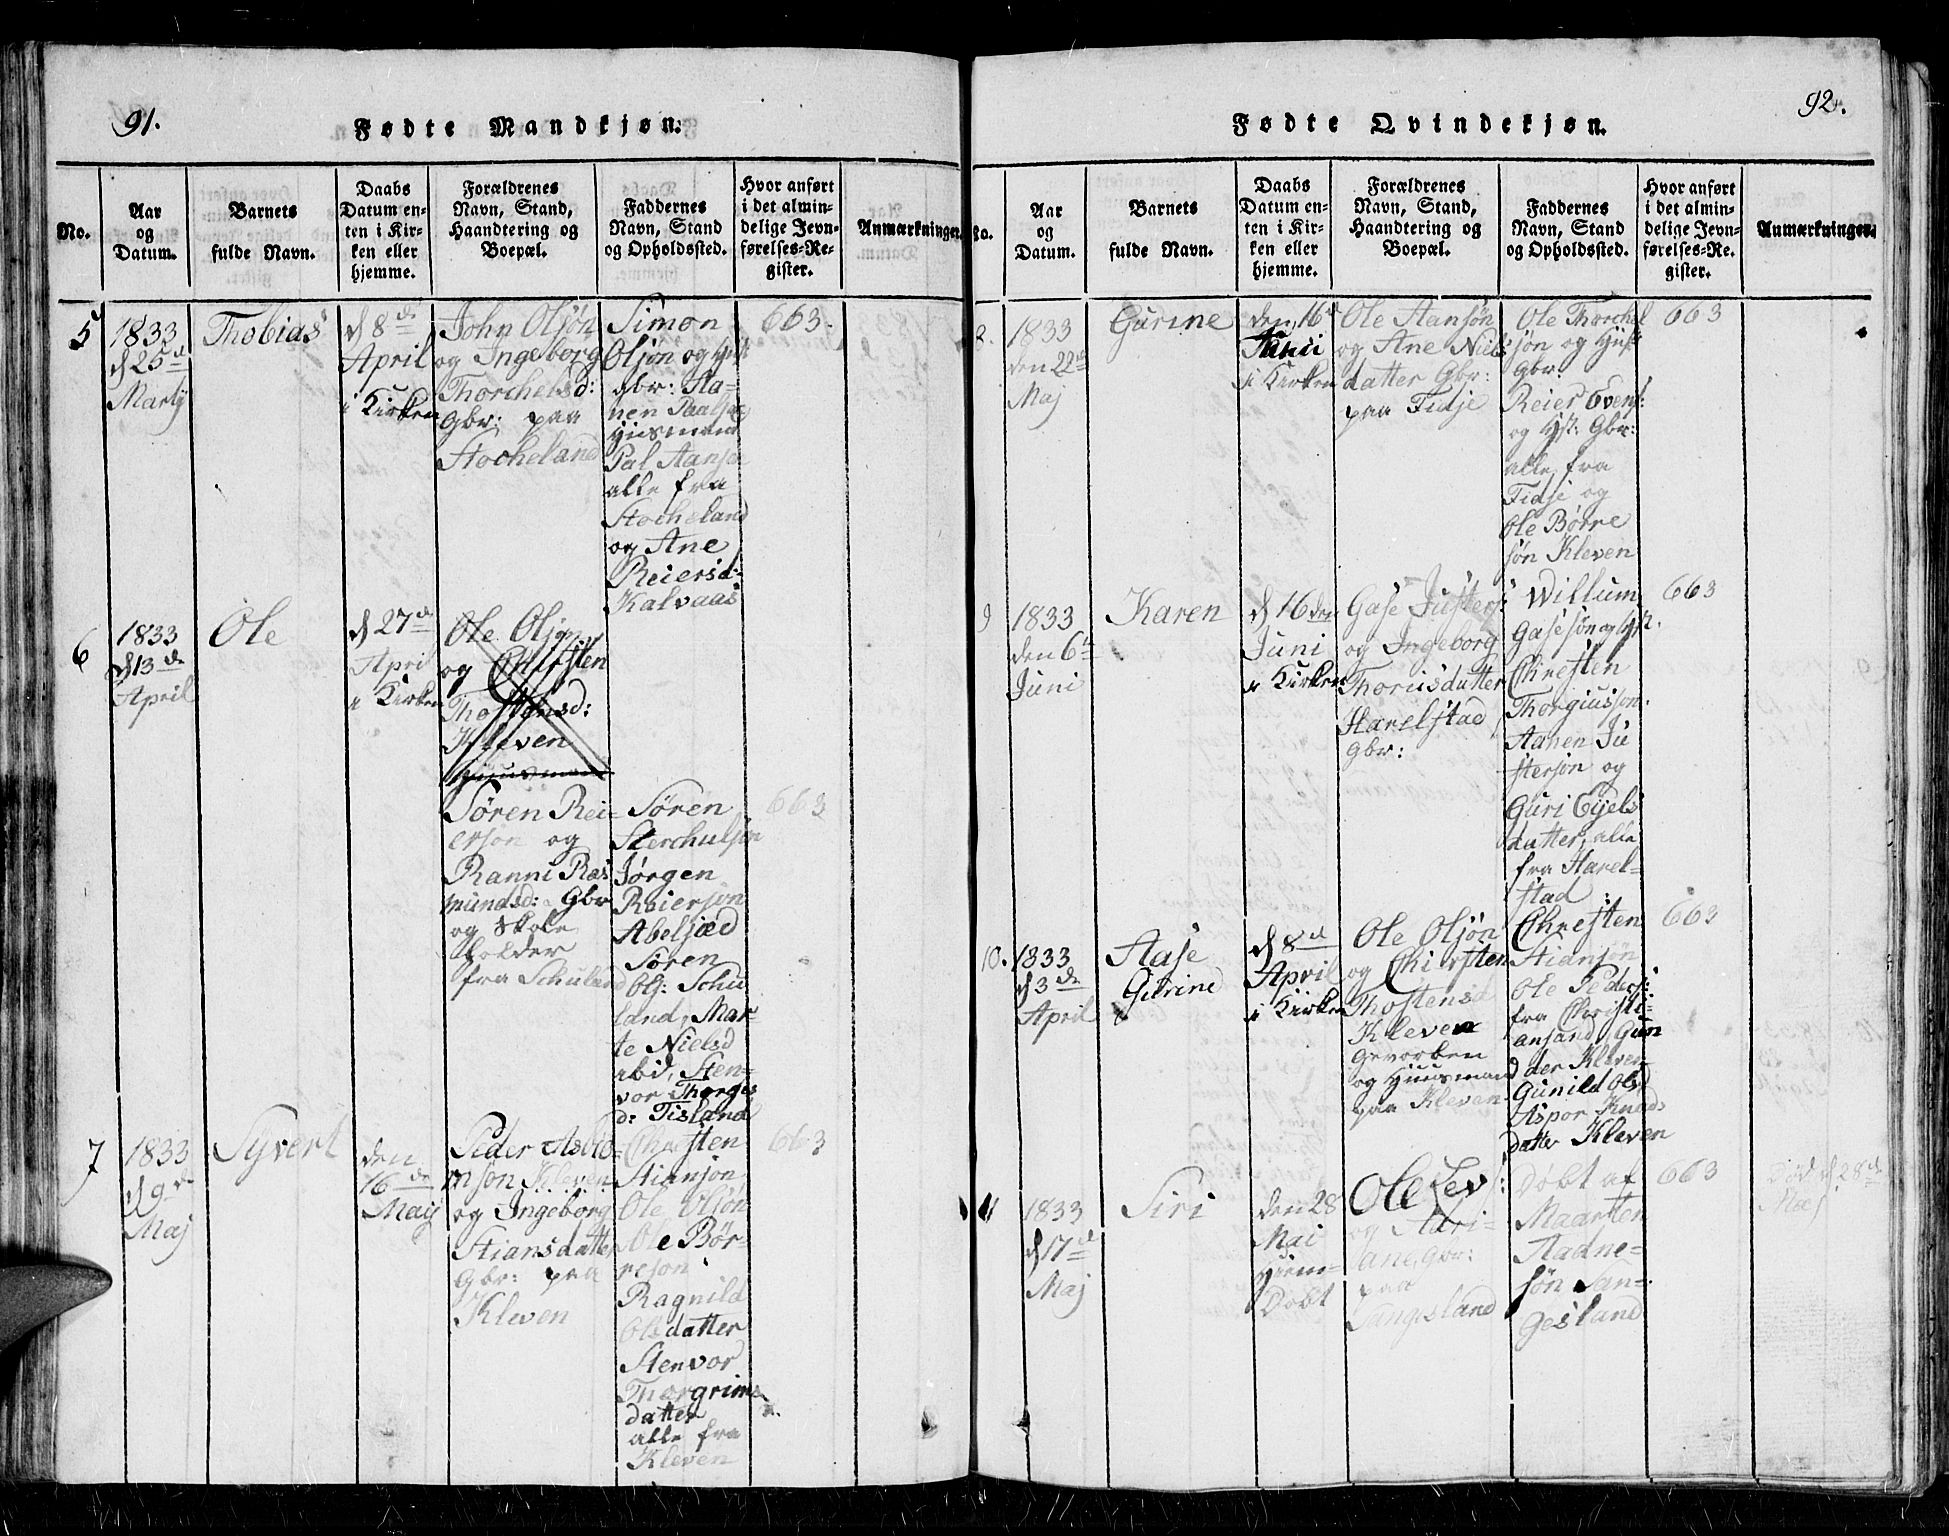 91.
Fødte Mandkjøn.
No.
Aar
og
Datum.
Barnets
fulde Navn.
Daabs
Datum en-
ten i Kir-
ken eller
hjemme.
Forældrenes
Navn, Stand,
Haandtering og
Boepæl.
Faddernes
Navn, Stand
og Opholdssted.
Hvor anført
i det almin-
delige Jevn-
førelses-Re-
gister.
Anmærkninger.
5
1833
d 25de
Martj
Thobias
d 8de
April
i Kirken
John Olsøn
og Ingeborg
Thorchelsd:
Gbr: paa
Stocheland
Simon
Olsøn og Hst
gbr: Aa-
nen
Huusmand
Pal Aansøn
alle fra
Stocheland
og Ane
Reiersd:
Kalvaas
663.
6
1833
d 13de
April
Ole
d 27de
April
i Kirken
Ole Olsøn
og Chirsten
Thostensd:
Kleven
Huusmand
Søren Rei-
ersøn og
Ranni Ras
mundsd: Gbr
og Skole
holder
fra Schuland
Søren
Sterchulsøn
Jørgen
Reiersøn
Abelsæd
Søren
Ols: Schu
land, Mar-
te Nielsd
ibid, Sten-
vor Thorges
d: Tisland
663
7
1833
d 9de
Maj
Syvert
den
16de
Maij
Peder Asbio-
rnsøn Kleven
og Ingeborg
Stiansdatter
Gbr: paa
Kleven
Chresten
Stiansøn,
Ole Olsøn
Ole Bør-
resøn
Ragnild
Olsdatter
Stenvor
Thorgrims
datter
alle fra
Kleven
663
92.
Fødte Qvindekjøn.
No.
Aar
og
Datum.
Barnets
fulde Navn.
Daabs
Datum en-
ten i Kir-
ken eller
hjemme.
Forældrenes
Navn, Stand,
Haandtering og
Boepæl.
Faddernes
Navn, Stand
og Opholdssted.
Hvor anført
i det almin-
delige Jevn-
førelses-Re-
gister.
Anmærkninger.
8.
1833
den 22de
Maj
Gurine
den 16de
Juni
i Kirken
Ole Aansøn
og Ane Niels
datter Gbr:
paa Fidje
Ole Thorchel
søn og Hust
Gbr:
Reier Evens:
og Hst: Gbr:
alle fra
Fidje og
Ole Børre
søn Kleven
663
9
1833
den 6te
Juni
Karen
d 16den
Juni
i Kirken
Gase Justers:
og Ingeborg
Thorusdatter
Harelstad
Gbr:
Willum
Gasesøn og Hst.
Chresten
Thorgiussøn.
Aanen Ju
stersøn og
Guri Eyels
datter, alle
fra Harel-
stad
663
10.
1833
d 3de
April
Aase
Gurine
d 8de
April
i Kirken
Ole Olsøn
og Chiersten
Thostensd
Kleven
Gevorben
og Huusmand
paa Kleven
Chresten
Stiansøn
Ole Peders:
fra Christi-
ansand, Gun
der Kleven
Gunild Olsd
Aspor Knuds
datter Kleven
663
11
1833
d 17de
Maj
Siri
den 28
Mai
Hjem-
Døbt
Ole Lev:
og Adri-
ane, Gbr:
paa
Sangesland
Døbt af
Maarten
Aadne-
søn San-
gesland
663
Død d 28de
Maj